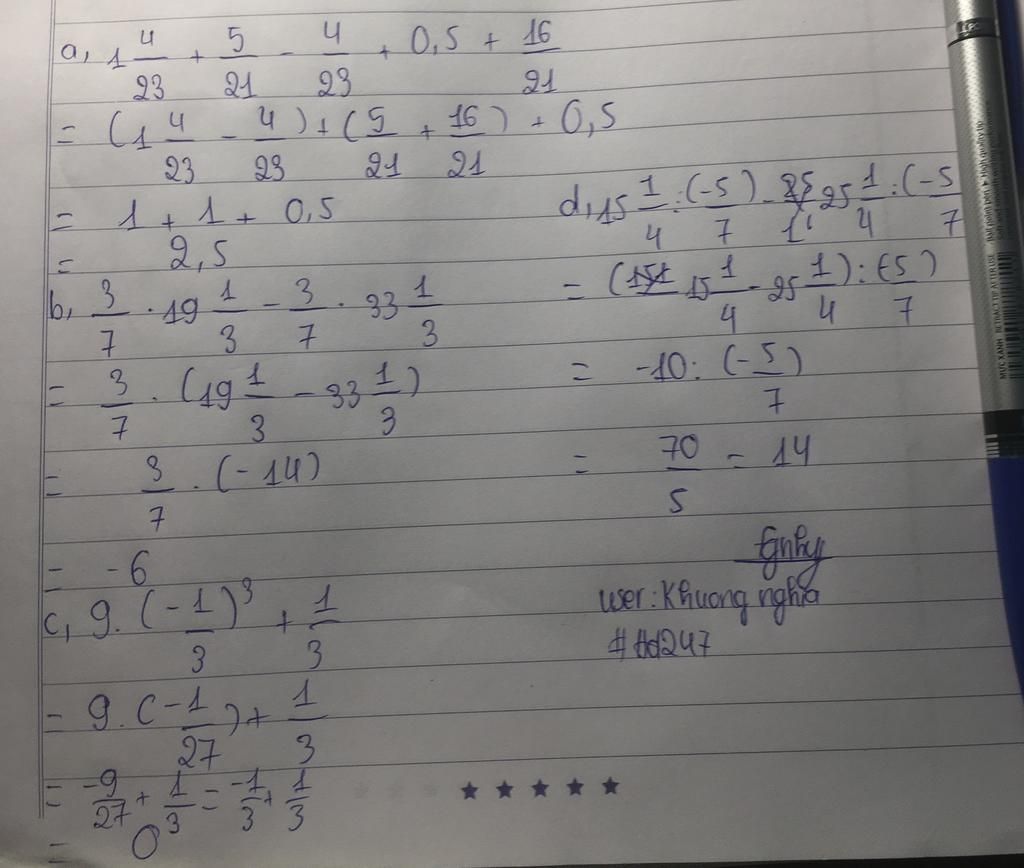 a, 1 4/23 + 5/21 - 4/23 + 0,5 + 16/21
= (1 4/23 - 4/23) + (5/21 + 16/21) + 0,5
= 1 + 1 + 0,5
= 2,5
b, 3/7 . 19 1/3 - 3/7 . 33 1/3
= 3/7 . (19 1/3 - 33 1/3)
= 3/7 . (-14)
= -6
c, 9. (-1/3)^3 + 1/3
= 9. (-1/27) + 1/3
= -9/27 + 1/3 = -1/3 + 1/3
= 0
d, 15 1/4 : (-5/7) - 25 1/4 : (-5/7
= (15 1/4 - 25 1/4) : (-5/7)
= -10 : (-5/7)
= 70/5 = 14
user: Khuong nghia
#Hd247